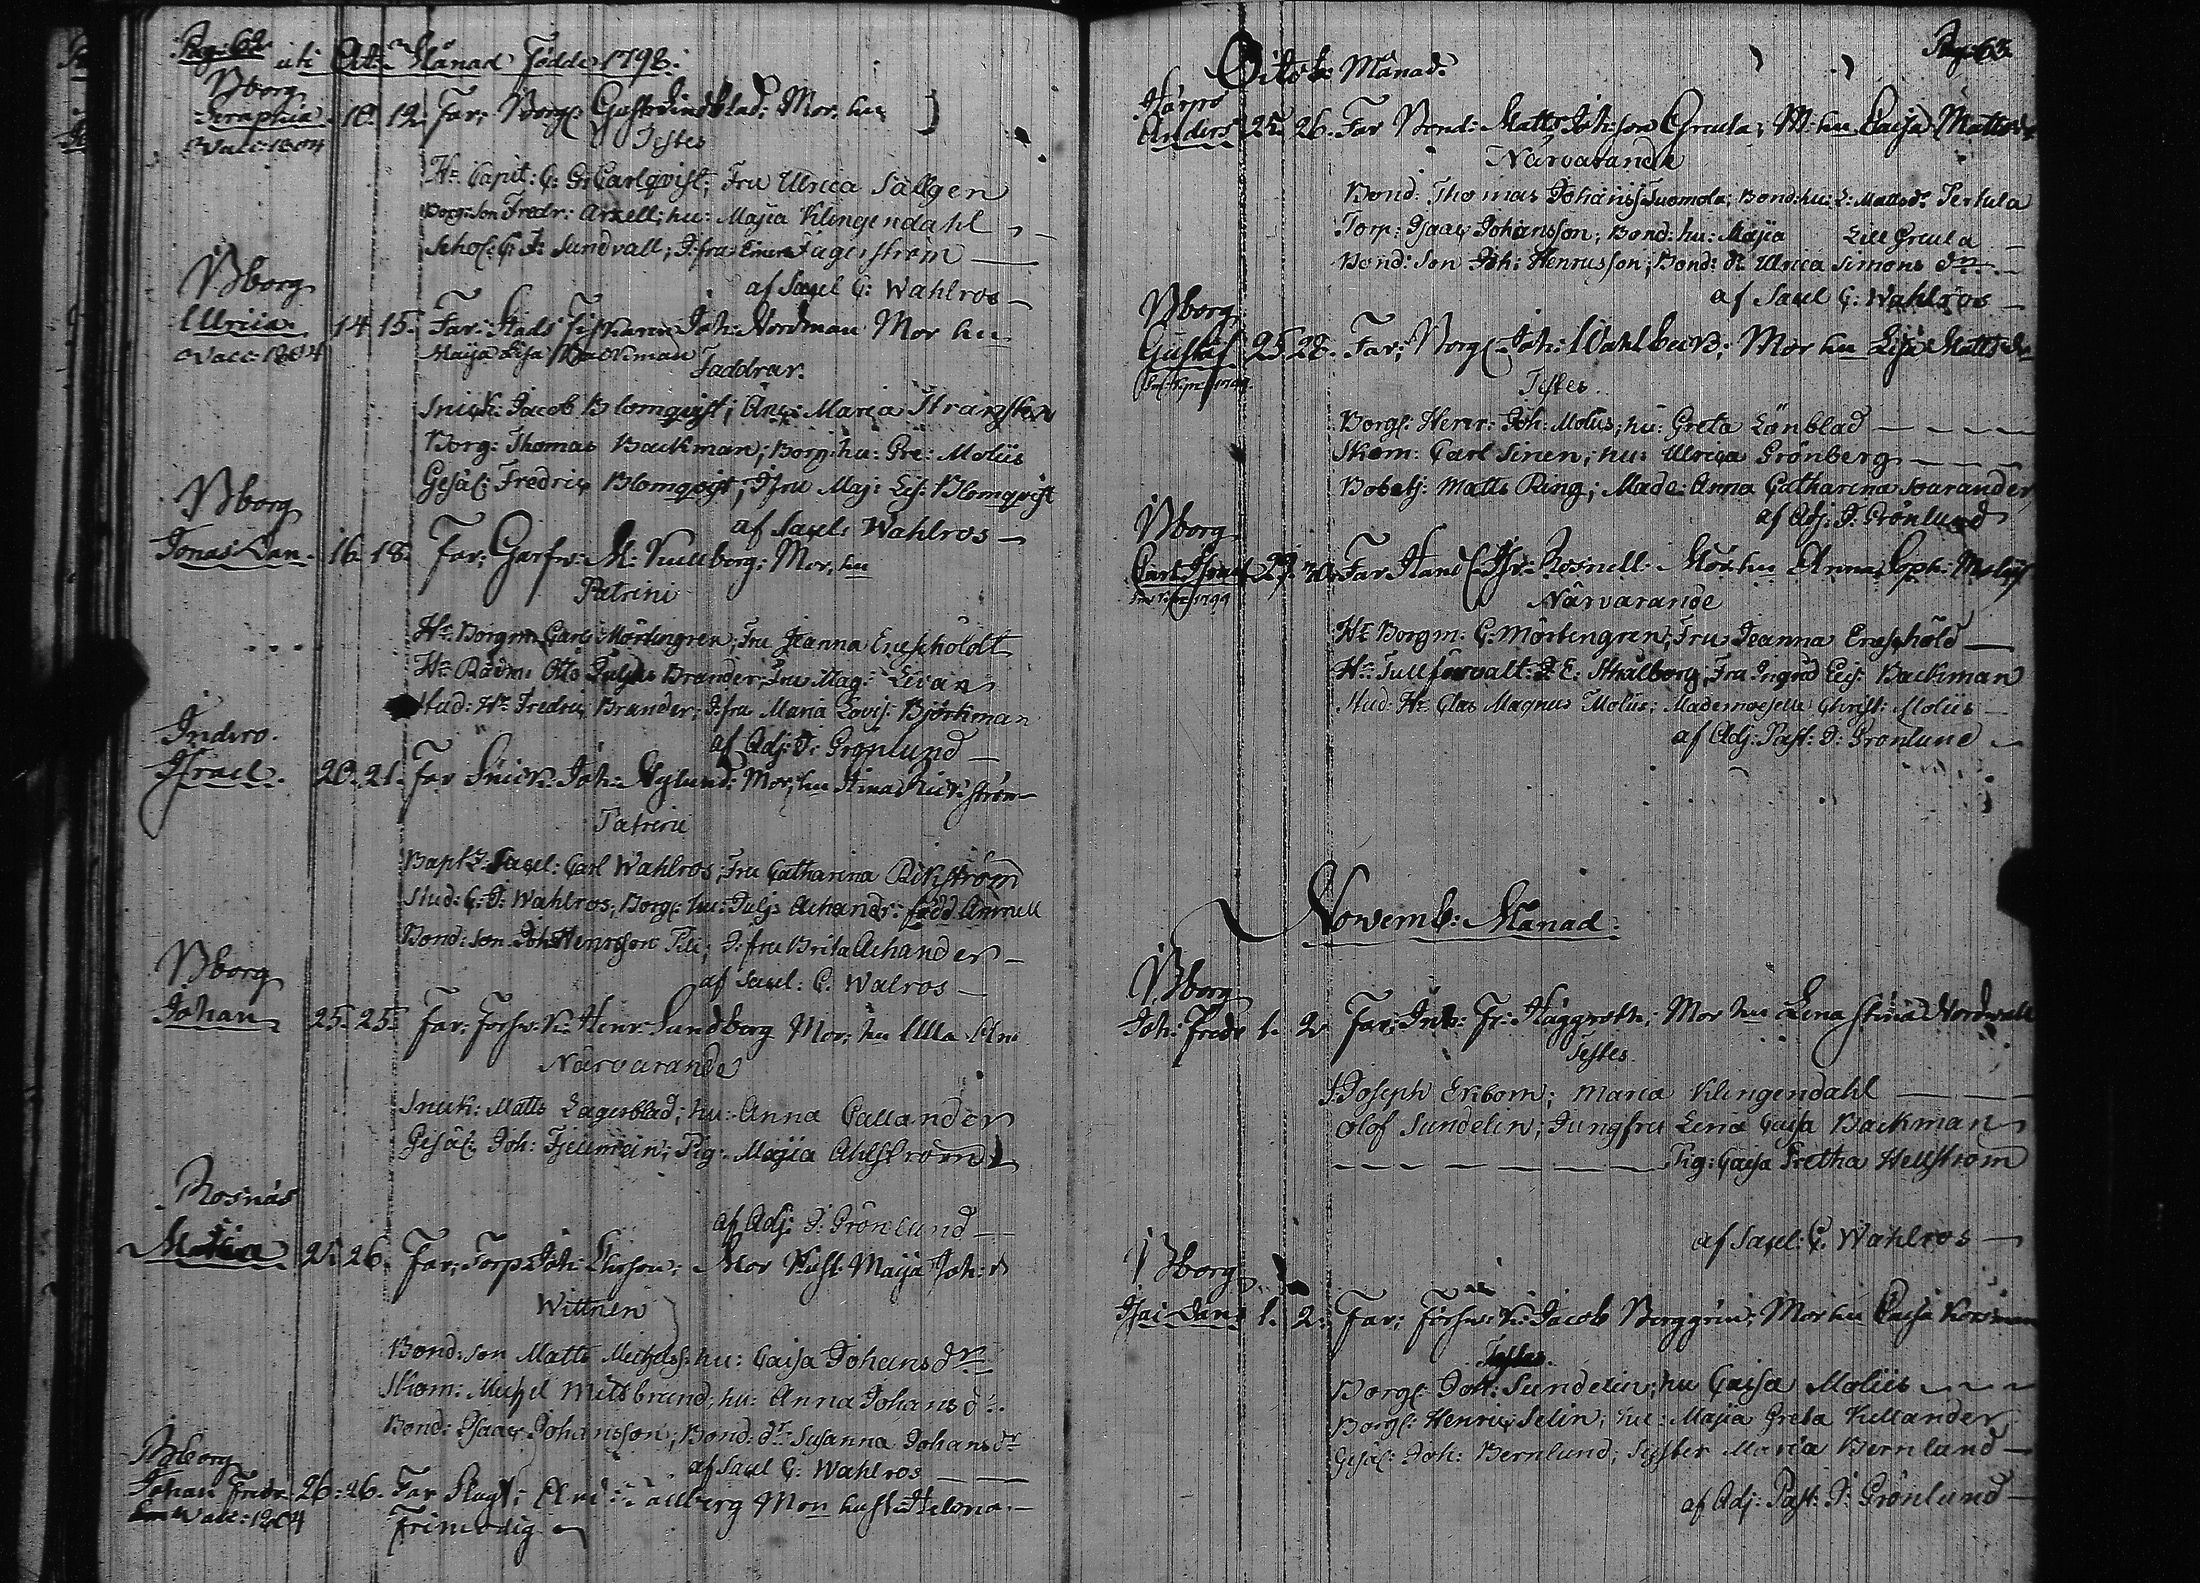 Pag: 62 uti Månad Födde 1798.
Bborg
Seraphia 10. 12. Far; Borg: Gust: Lindblad; Mor. hu
Vacc: 1804
Testes
Hr Capit: C: G: Carlqvist; Fru Ulrica Sallgen
Borg: Son Fredr: Arzell; hu: Majia Klingendahl
Schol: C: J: Sundvall; J:fru Fagerström
af Sacel C: Wahlros
Bborg
Ulrica 14 15. Far: Stads Fiskaren Joh: Nordman Mor hu
Vacc: 1804 Maija Lisa Backman
Faddrar.
Snick: Jacob Blomqvist; Maria
Borg: Thomas Backman; Borg: hu: Gre: Moliis
Gesäl: Fredric Blomqvist; J:fru Maj: Lis: Blomqvist
af Sacel: Wahlros
Bborg
Jonas Dan. 16. 18. Far; Garfw: M: Kullberg; Mor, hu
Patrini
Hr Borgm: Carl Mårtengren; Fru Jeanna
Hr Rådm: Otto Brander; Fru Mag:
Stud: Hr Fredric Brander; J:fru Maria Lovis: Björkman
af Adj: J: Grönlund
Inderö.
Israel. 20. 21. Far Snick: Joh: Nylund: Mor, hu Stina
Patrini
Bapt: Sacel: Carl Wahlros; Fru Catharina
Stud: C: J: Wahlros; Borg: hu: Achandr: född
Bond: Son Joh: Henrsson; J:fru Brita Achander
af Sacel: C. Walros
Bborg
Johan 25. 25. Far: Försw: K: Henr: Sundberg Mor, hu Ulla
Närvarande
Snick: Matts Lagerblad; hu: Anna Callander
Gesäl: Joh: Pig: Majia Ahlström
af Adj: J: Grönlund
Rosnäs
25. 26. Far; Torp: Joh: Mor Hust: Maija Joh: d
Wittnen
Bond: Son Matts Michelss: hu: Caisa Johansdr
Skom: Michel Mittbrund; hu: Anna Johansdr.
Bond: Isaac Johansson; Bond: dr Susanna Johansdr
af Sacel C: Wahlros
Bborg
Johan Fredr. 26. 26. Far Tallberg Mor hust: Helena
Vacc: 1804 Frimodig

Pag: 63.
Octob: Månad.
Härpö
Anders 25. 26. Far Bond: Matts Johsson Greula; M: hu Caisa Mattsdr
Närvarande
Bond: Thomas Johanss: Tuomola; Bond: hu: L: Mattsdr Perkula
Torp: Isaac Johansson; Bond: hu: Majia Lill Greula
Bond: Son Joh: Henricsson; Bond: dr Ulrica Simonsdr
af Sacel C: Wahlros
Bborg
Gustaf 25 28. Far; Borg: Joh: Wahlbeck; Mor hu Lisa Mattsdr
Testes
Borg: Herr: Joh: Molius; hu: Greta Lönblad
Skom: Carl Sinen; hu: Ulrica Grönberg
Matts Ring; Made: Anna Catharina Soarander
af Adj: J: Grönlund
Bborg
Carl 29. 30. Far Hand: Rosnell. Mor hu Anna Soph: Moliis
Närvarande
Hr Borgm: C: Mårtengren; Fru Jeanna
Hr Tullförvalt: J: E: Stkålberg; Fru Ingrid Lis: Backman
Stud: Hr Clas Magnus Molius; Mademoiselle Christ: Moliis
af Adj: Past: J: Grönlund
Novemb: Månad.
Bborg
Joh: Fredr 1. 2. Far; Inh: Fr: Häggroth; Mor hu Lena Stina Nordvall
Testes
Joseph Ekbom; Maria Klingendahl
Olof Sundelin; Jungfru Lena Caisa Backman
Pig: Caisa Gretha Hellström
af Sacel: C. Wahlros
Bborg
Isac Dan 1. 2. Far; Försw: K: Jacob Berggren; Mor hu Caisa
Testes
Borg: Joh: Sundelin; hu Caisa Moliis
Borg: Henric Selin; hu: Majia Greta Kullander
Gesäl: Joh: Bernlund; Syster Maria Bernlund
af Adj: Past: J: Grönlund